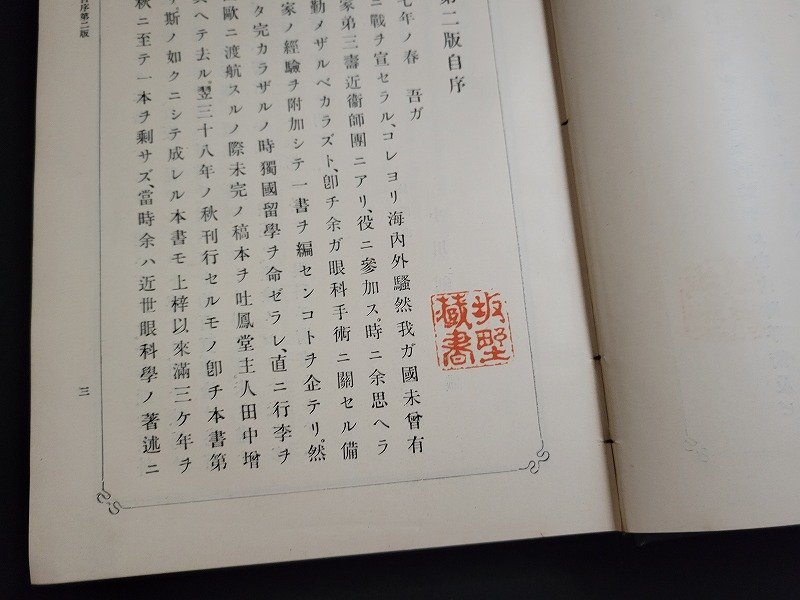 第二版自序
七年ノ春 吾ガ
ニ戰ヲ宣セラル、コレヨリ海內外騷然我ガ國未曾有
家弟三壽近衞師團ニアリ、役ニ參加ス。時ニ余思ヘラ
勤メザルベカラズト、卽チ余ガ眼科手術ニ關セル備
家ノ經驗ヲ附加シテ一書ヲ編センコトヲ企テリ。然
タ完カラザルノ時獨國留學ヲ命ゼラレ、直ニ行李ヲ
歐ニ渡航スルノ際未完ノ稿本ヲ吐鳳堂主人田中增
ヘテ去ル。翌三十八年ノ秋刊行セルモノ卽チ本書第
斯ノ如クニシテ成レル本書モ上梓以來滿三ケ年ヲ
秋ニ至テ一本ヲ剩サズ、當時余ハ近世眼科學ノ著述ニ
自序第二版
三
坂野
藏書